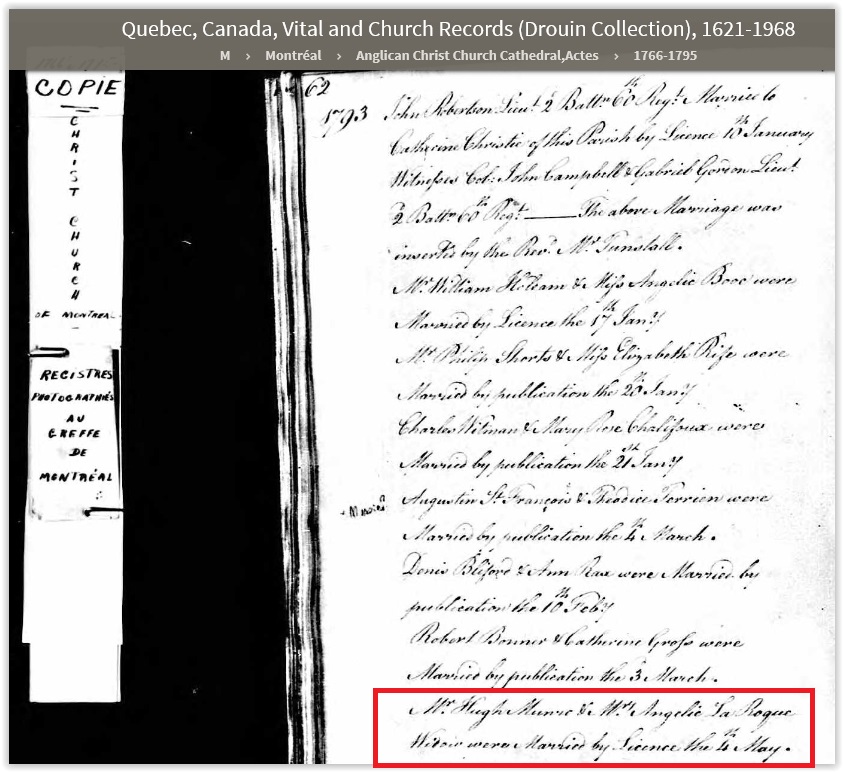 Quebec, Canada, Vital and Church Records (Drouin Collection), 1621-1968
M › Montréal › Anglican Christ Church Cathedral,Actes › 1766-1795
COPIE
CHRIST
CHURCH
OF MONTREAL
REGISTRES
PHOTOGRAPHIÉS
AU
GREFFE
DE
MONTRÉAL
62
1793 John Robertson Lieut. 2 Battn 60th Regt. Married to
Catherine Christie of this Parish by Licence 10th January
Witnesses Col: John Campbell & Gabriel Gordon Lieut.
2 Battn 60th Regt. The above Marriage was
inserted by the Revd. Mr. Tunstall.
Mr. William & Miss Angelic were
Married by Licence the 17th Jany
Mr. Philip Shorts & Miss Elizabeth Rise were
Married by publication the 20th Jany
Charles Witman & Mary Rose Chalifoux were
Married by publication the 21st Jany
Augustin St. François & Theodice Terrien were
Married by publication the 4th March.
Denis & Ann were Married by
publication the 10th Feby
Robert Bonner & Catherine Gross were
Married by publication the 3 March.
Mr. Hugh Munro & Mrs. Angelic La Roque
Widow were Married by Licence the 4th May.